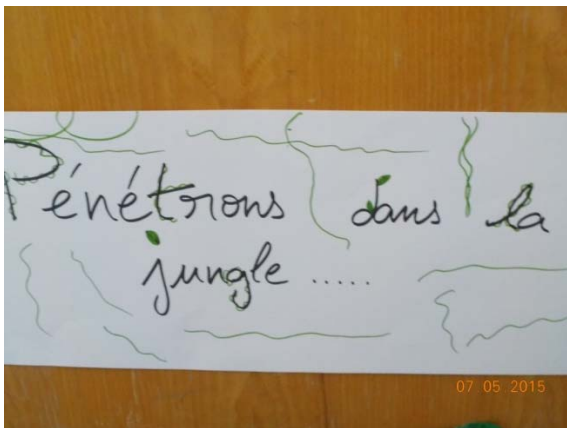 Pénétrons dans la
jungle .....
07 05 2015